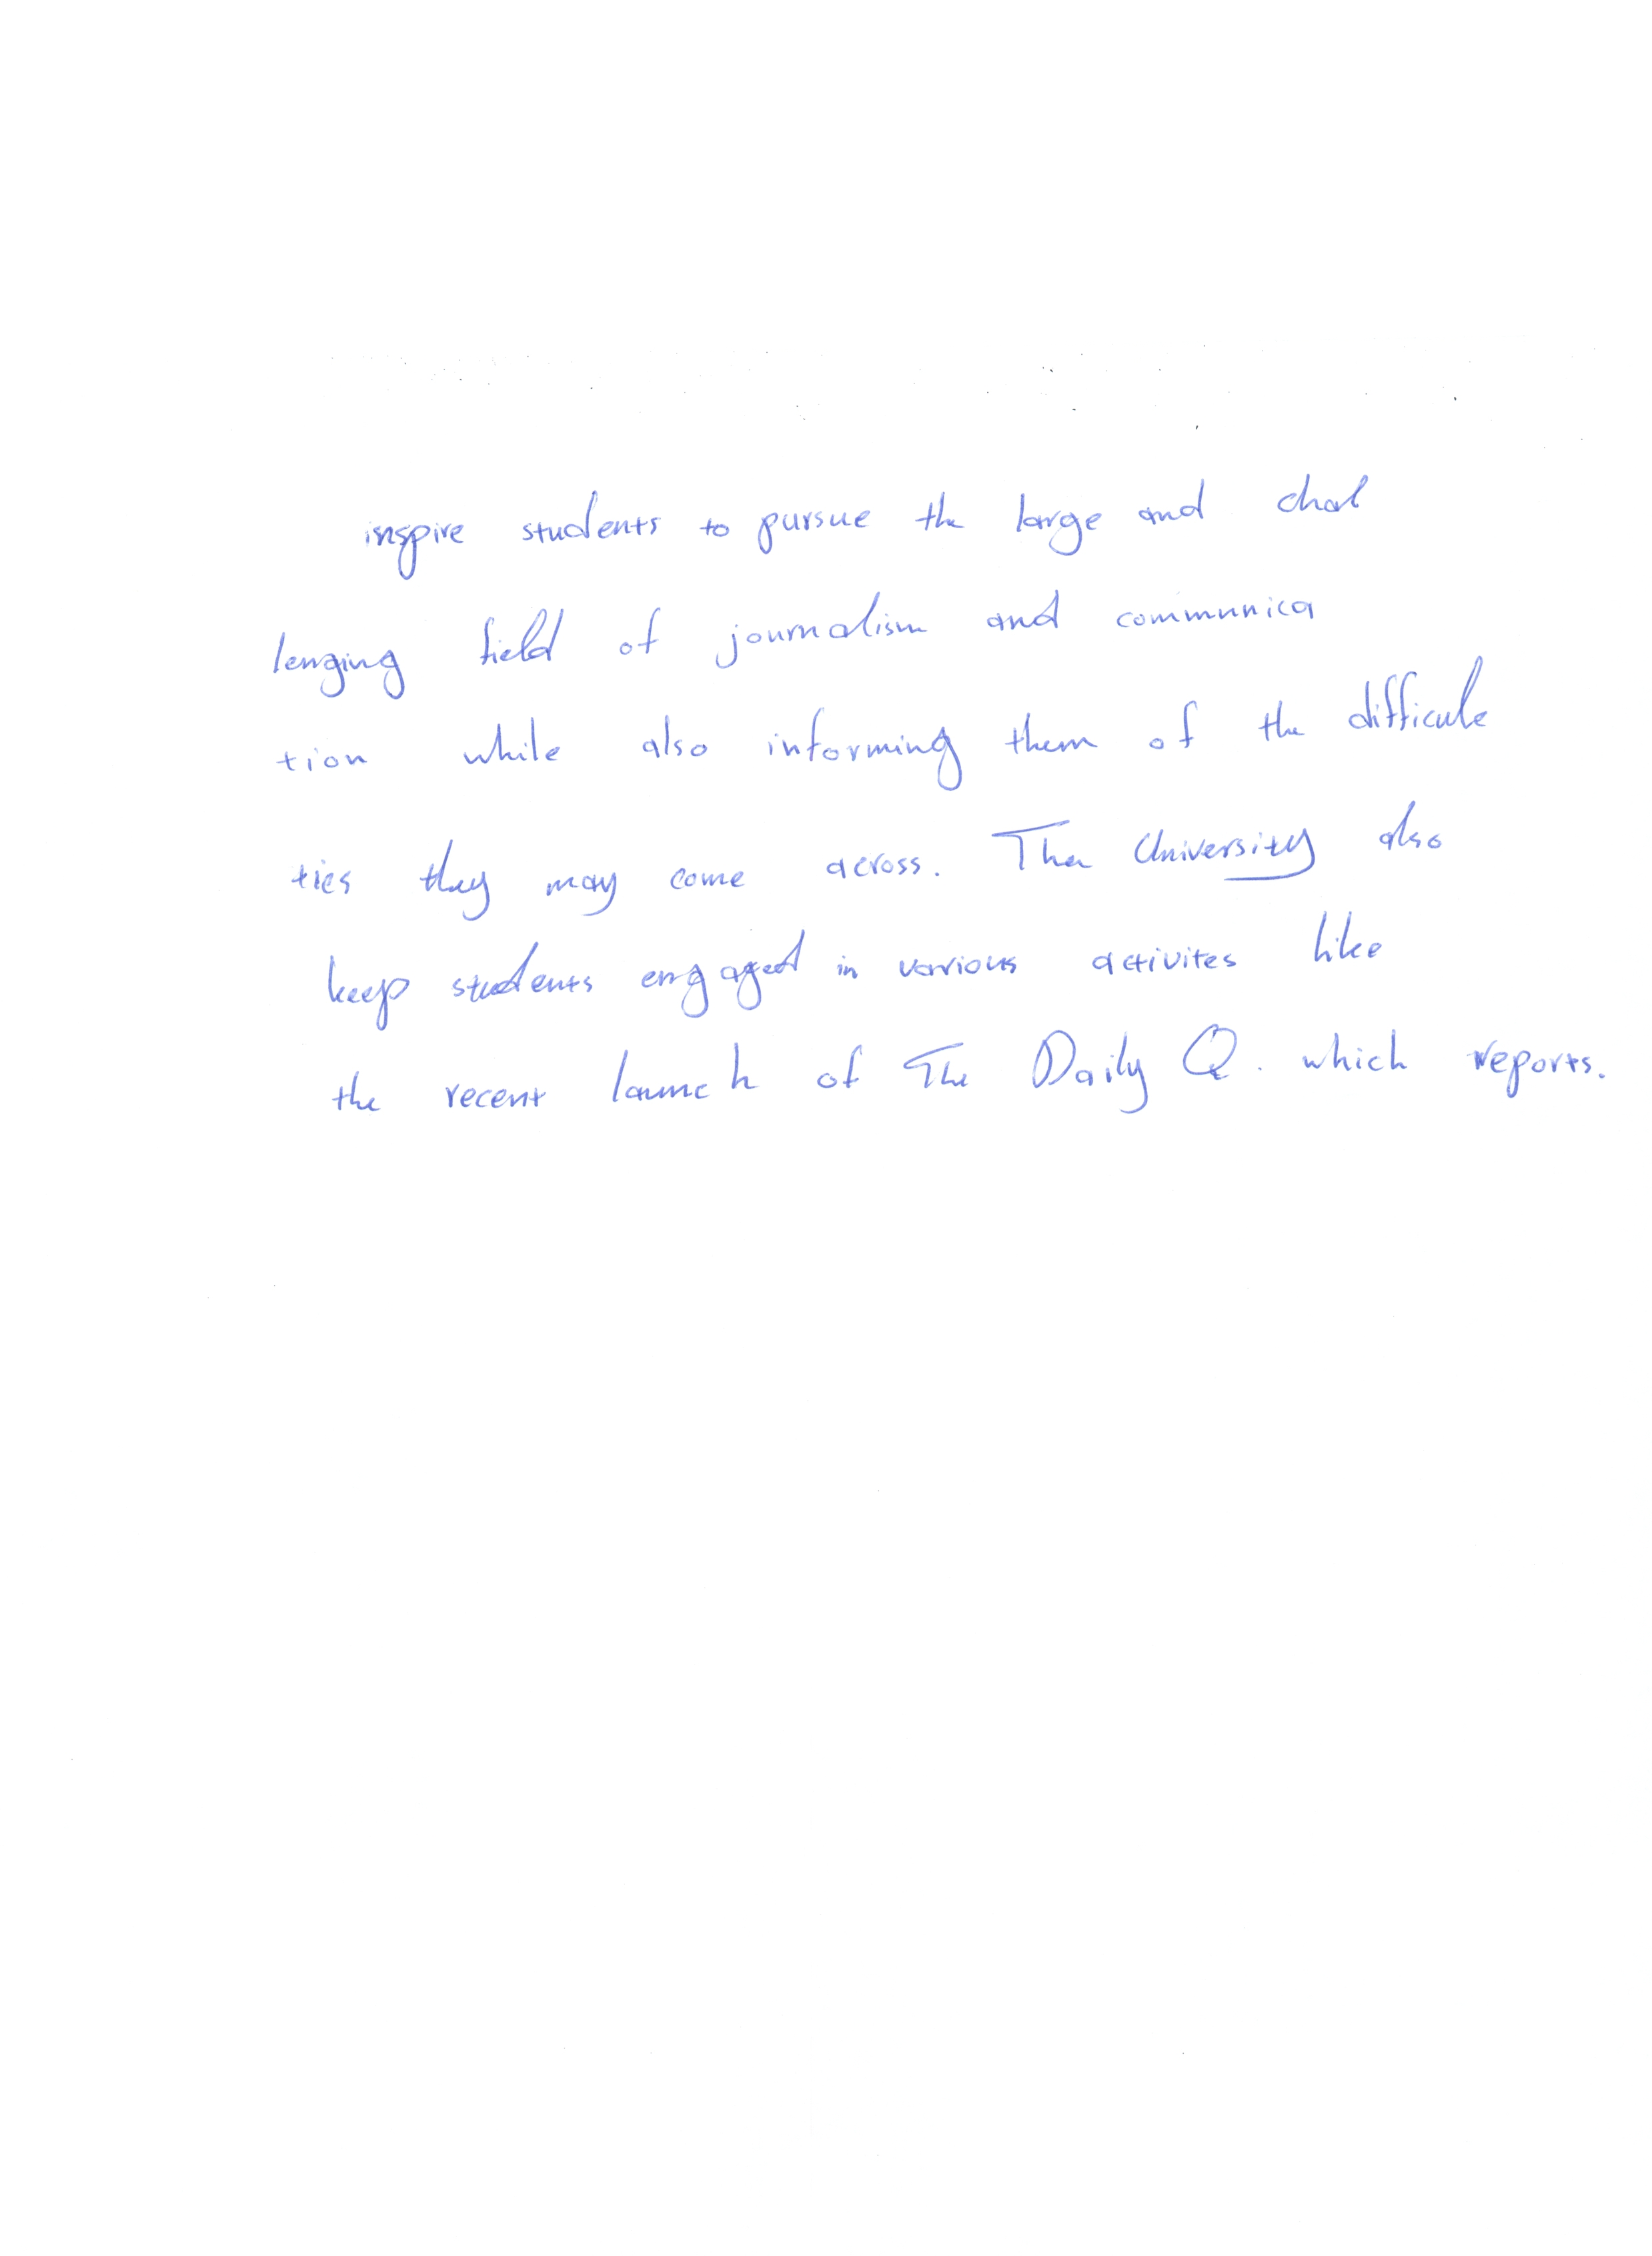 inspire students to pursue the large and chal
lenging field of journalism and communica
tion while also informing them of the difficule
ties they may come across. The University also
keep students engaged in various activites like
the recent launch of The Daily Q. which reports.